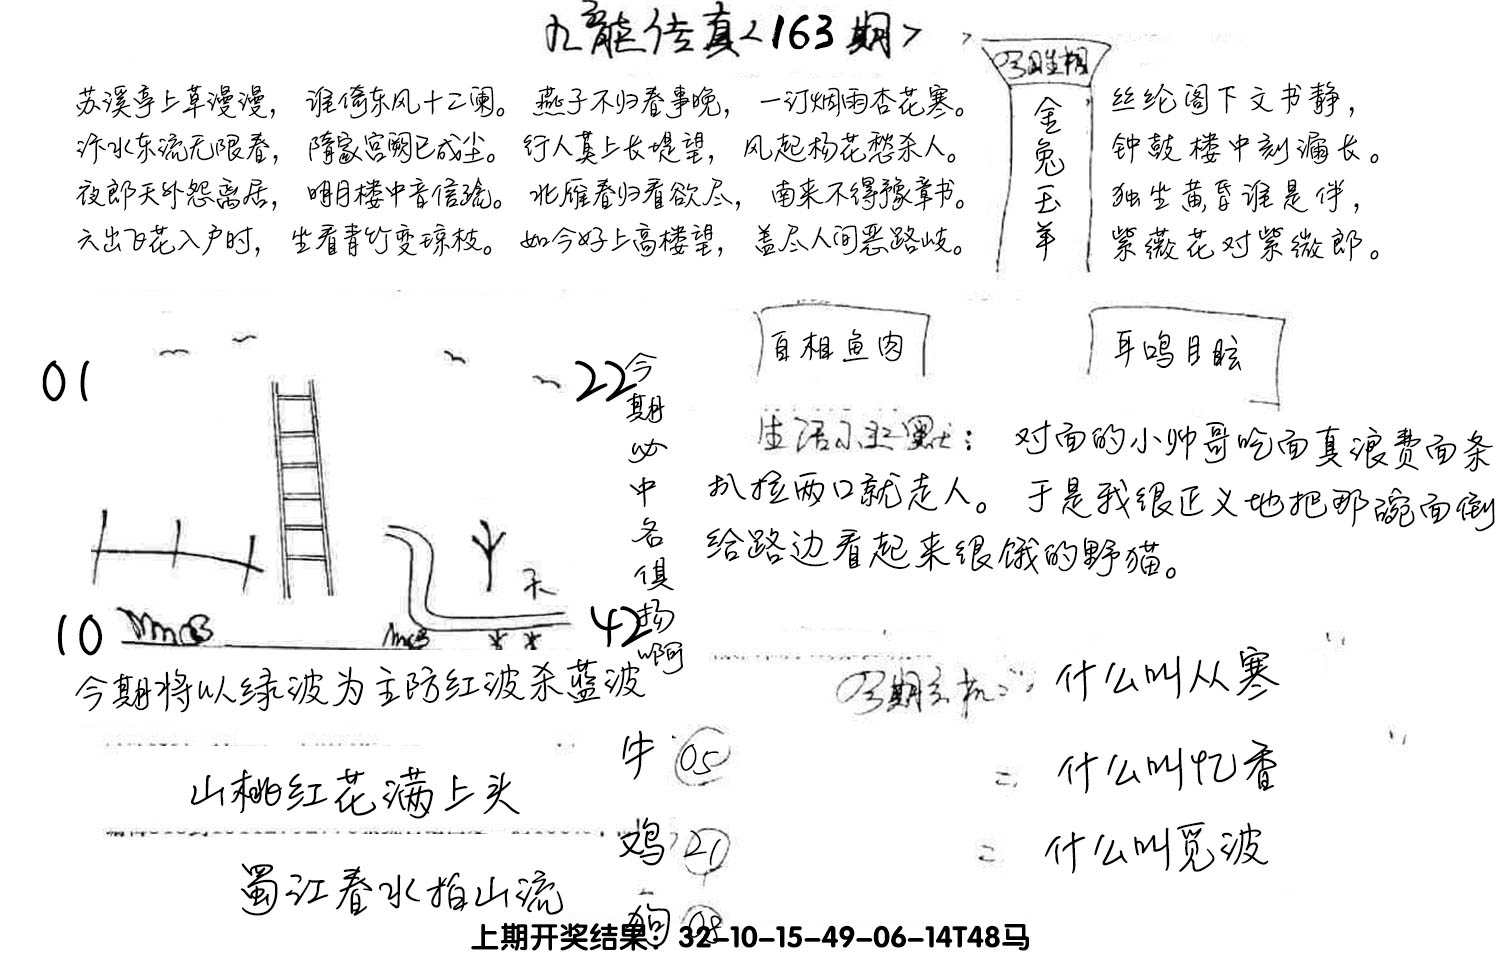 九龙传真<163期>
苏溪亭上草漫漫，谁倚东风十二阑。燕子不归春事晚，一汀烟雨杏花寒。
汴水东流无限春，隋家宫阙已成尘。行人莫上长堤望，风起杨花愁杀人。
夜郎天外怨离居，明月楼中音信疏。北雁春归看欲尽，南来不得豫章书。
六出飞花入户时，坐看青竹变琼枝。如今好上高楼望，盖尽人间恶路岐。
金兔玉羊
丝纶阁下文书静，
钟鼓楼中刻漏长。
独坐黄昏谁是伴，
紫薇花对紫微郎。
自相鱼肉
耳鸣目眩
01
22
10
42
今期必中各俱扬啊
生活小幽默：对面的小帅哥吃面真浪费面条
扒拉两口就走人。于是我很正义地把那碗面倒
给路边看起来很饿的野猫。
今期将以绿波为主防红波杀蓝波
山桃红花满上头
蜀江春水拍山流
牛 05
鸡 21
狗 08
今期玄机：什么叫从寒
二 什么叫忆香
二 什么叫觅波
上期开奖结果：32-10-15-49-06-14T48马